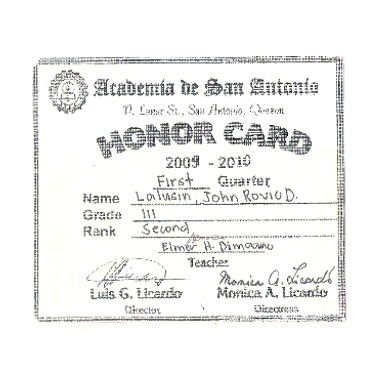 Academia de San Antonio
San Antonio, Quezon
HONOR CARD
2009 - 2010
First Quarter
Name Lalusin, John Rovic D.
Grade III
Rank Second
Elmer H. Dimaano
Teacher
Luis G. Licardo Monica A. Licardo
Director Directress